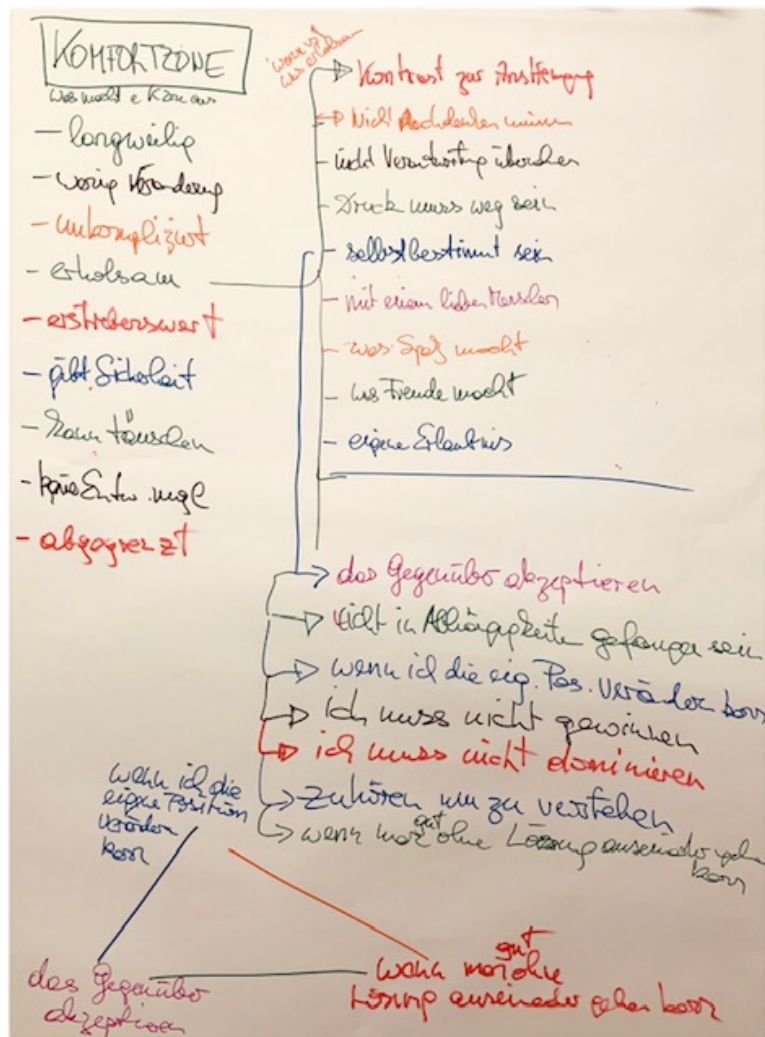 KOMFORTZONE
was macht e Kzone aus
- langweilig
- wenig Veränderung
- unkompliziert
- erholsam
- erstrebenswert
- gibt Sicherheit
- kann täuschen
- keine Entw. mgl
- abgegrenzt
wann ist
was erholsam
Kontrast zur Anstrengung
Nicht Nachdenken müssen
- nicht Verantwortung
- Druck muss weg sein
- selbstbestimmt sein
- mit einem lieben Menschen
- was Spaß macht
- was Freude macht
- eigene Erlaubnis
das Gegenüber akzeptieren
nicht in Abhängigkeiten gefangen sein
wenn ich die eig. Pos. verändern kann
ich muss nicht gewinnen
ich muss nicht dominieren
Zuhören um zu verstehen
wenn man gut ohne Lösung auseinander gehen
kann
wenn ich die
eigene Position
verändern
kann
das Gegenüber
akzeptieren
wenn man gut ohne
Lösung auseinander gehen kann